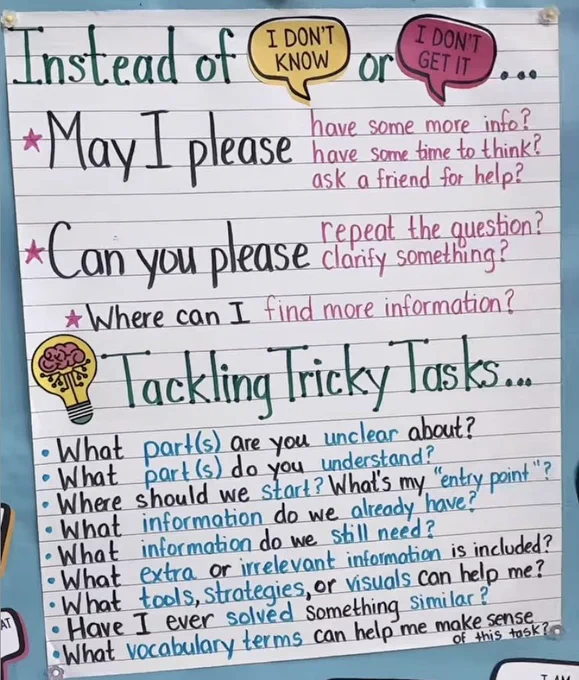 Instead of I DON'T KNOW or I DON'T GET IT ...
May I please
have some more info?
have some time to think?
ask a friend for help?
Can you please
repeat the question?
clarify something?
Where can I find more information?
Tackling Tricky Tasks...
• What part(s) are you unclear about?
• What part(s) do you understand?
• Where should we start? What's my "entry point"?
• What information do we already have?
• What information do we still need?
• What extra or irrelevant information is included?
• What tools, strategies, or visuals can help me?
• Have I ever solved something similar?
• What vocabulary terms can help me make sense
of this task?
AT
I AM